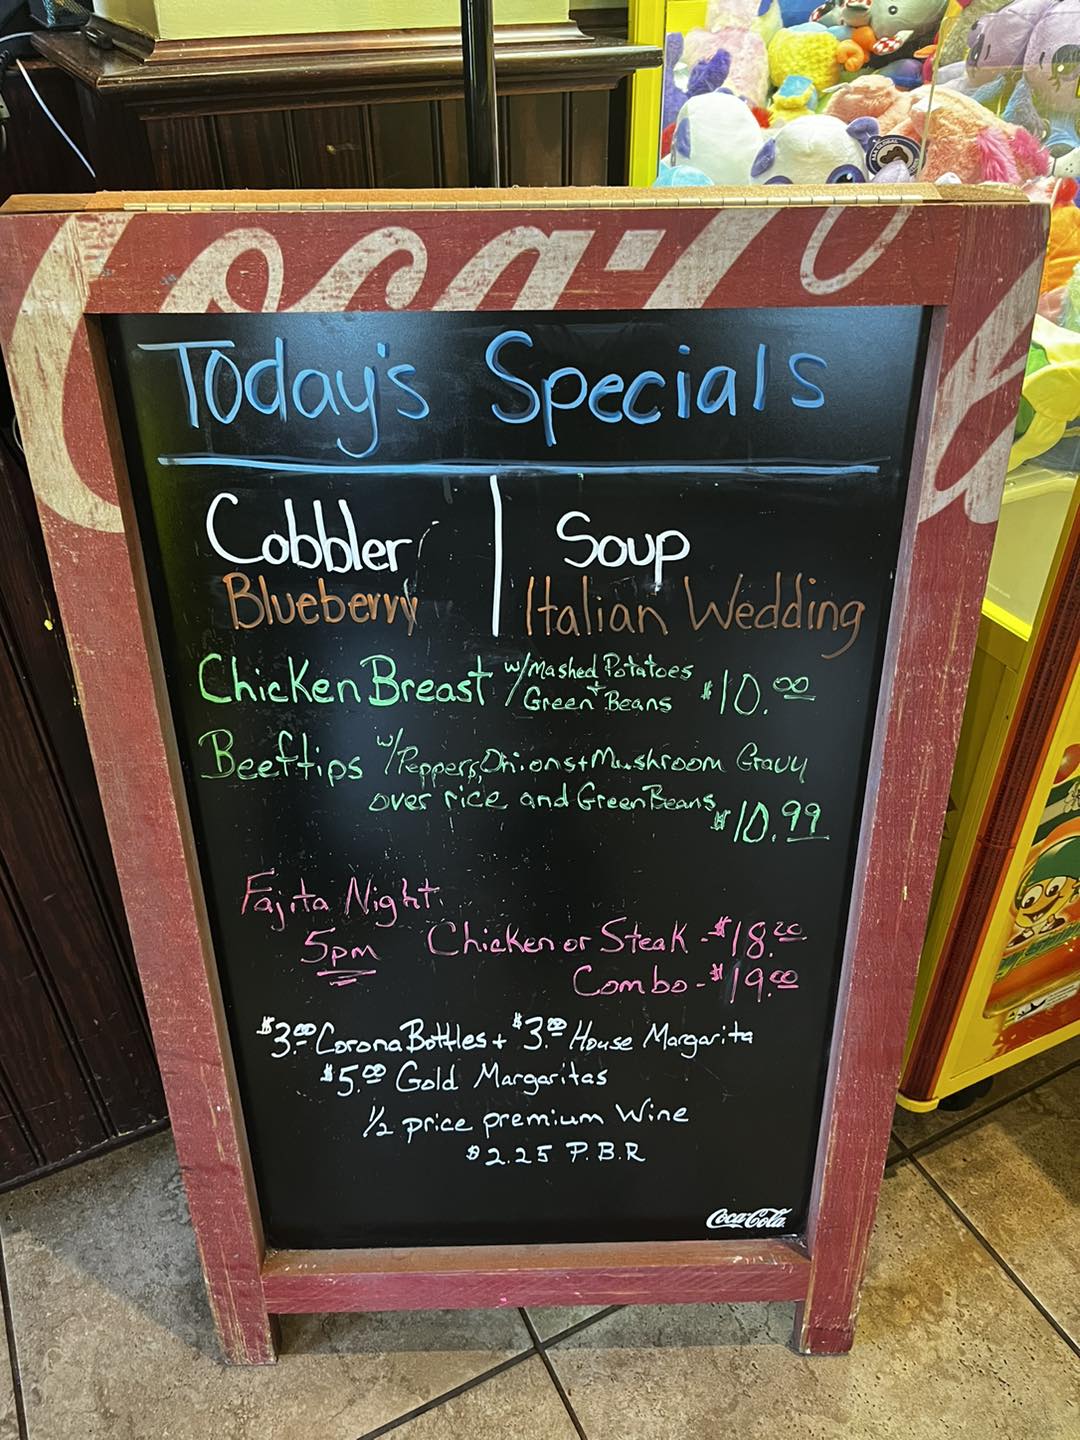 Coca-Co
Today's Specials
Cobbler | Soup
Blueberry Italian Wedding
Chicken Breast w/Mashed Potatoes + Green Beans $10.00
Beeftips w/Peppers, Onions + Mushroom Gravy
over rice and Green Beans $10.99
Fajita Night
5pm Chicken or Steak - $18.00
Combo - $19.00
$3.00 Corona Bottles + $3.00 House Margarita
$5.00 Gold Margaritas
1/2 price premium Wine
$2.25 P.B.R
Coca-Cola